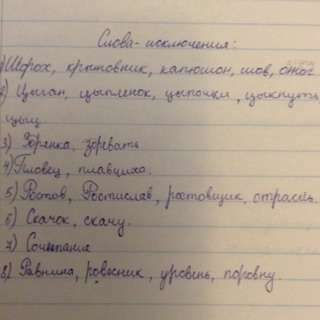 Слова-исключения:
1) Шорох, крыжовник, капюшон, шов, ожог
2) Цыган, цыпленок, цыпочки, цыкнуть
цыц
3) Зорянка, зоревать
4) Пловец, пловчиха.
5) Ростов, Ростислав, ростовщик, отрасль.
6) Скачок, скачу.
7) Сочетание
8) Равнина, ровесник, уровень, поровну.